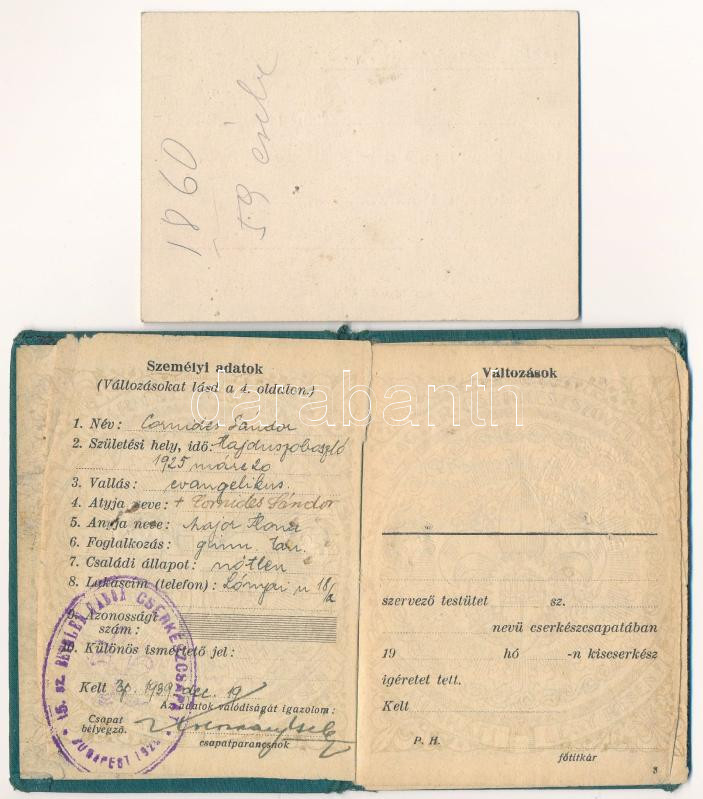 1860
59 évelx
Személyi adatok
(Változásokat lásd a 4. oldalon.)
1. Név: Cornides Sándor
2. Születési hely, idő: Hajduszoboszló
1925 márc 20
3. Vallás: evangélikus.
4. Atyja neve: + Cornides Sándor
5. Anyja neve: Major Ilona
6. Foglalkozás: gimn. tan.
7. Családi állapot: nőtlen
8. Lakáscím (telefon): Lónyai u 18/a
9. Azonossági
szám:
10. Különös ismertető jel:
Kelt Bp. 1939 dec. 19
Az adatok valódiságát igazolom:
Csapat
bélyegző.
csapatparancsnok
15. sz. BETHLEN GÁBOR CSERKÉSZCSAPAT
BUDAPEST
Változások
szervező testület sz.
nevü cserkészcsapatában
19 hó -n kiscserkész
igéretet tett.
Kelt
P. H.
főtitkár
3
darabanth